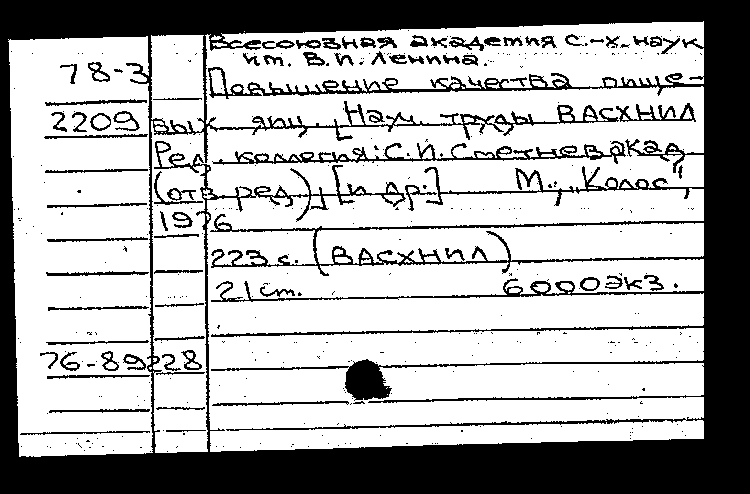 Всесоюзная академия с.-х. наук
им. В.И. Ленина.
78-3
Повышение качества пище-
2209 вых яиц. [Науч. труды ВАСХНИЛ
Ред. коллегия: С.И. Сметнев акад.
(отв. ред.)] [и др.]. М., "Колос",
1976
223 с. (ВАСХНИЛ)
21 см. 6000 экз.
76-89228